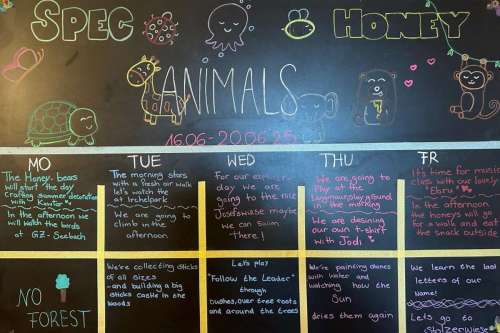 SPEC
HONEY
ANIMALS
16.06 - 20.06.25
MO
TUE
WED
THU
FR
The Honey bears
will start the day
Crafting summer decoration
with
In the afternoon we
will watch the birds
at GZ-Seebach
The morning stars
with a fresh air walk
let's watch the
at Irchelpark
We are going to
climb in the
afternoon
For our
day we are
going to the
maybe
we can
there!
We are going to
Play at the
playground
in the morning
We are desining
our own t-shirt
with Jodi
It's time for music
class with our lovely
In the afternoon
the honeys will go
for a walk and eat
the snack outside
NO
FOREST
We're collecting sticks
of all sizes
- and building a big
sticks castle in the
woods
Let's play
"Follow the Leader"
through
bushes, over tree roots
and around the trees
We're painting
with water and
watching how the
Sun
dries them again
We learn the last
letters of our
Name!
Let's go to